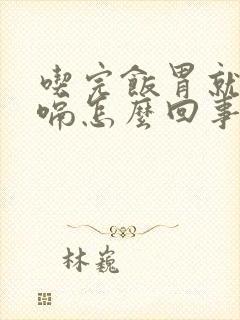 喫完飯胃就
嗝怎麼回事
林巍